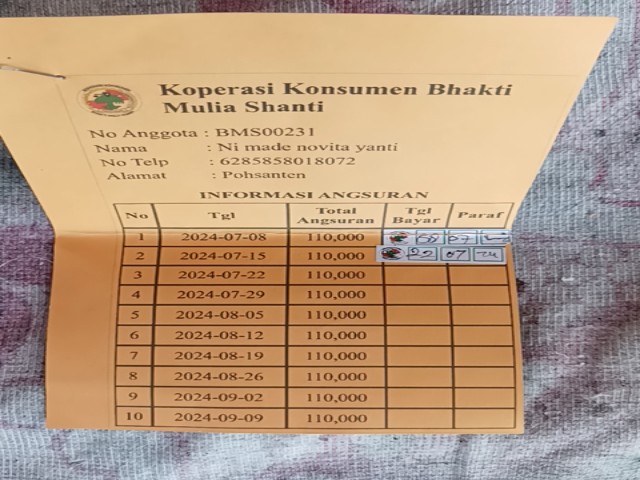 Koperasi Konsumen Bhakti
Mulia Shanti
No Anggota : BMS00231
Nama : Ni made novita yanti
No Telp : 6285858018072
Alamat : Pohsanten
INFORMASI ANGSURAN
No Tgl Total Angsuran Tgl Bayar Paraf
1 2024-07-08 110,000 07
2 2024-07-15 110,000 22 07
3 2024-07-22 110,000
4 2024-07-29 110,000
5 2024-08-05 110,000
6 2024-08-12 110,000
7 2024-08-19 110,000
8 2024-08-26 110,000
9 2024-09-02 110,000
10 2024-09-09 110,000